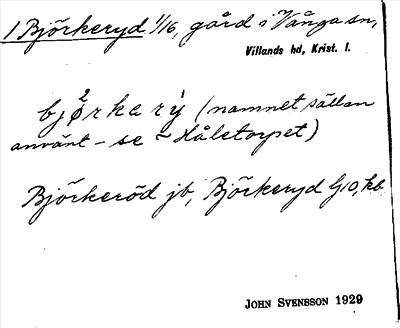 1 Björkeryd 1/16, gård i Vånga sn,
Villands hd, Krist. l.
bjø²rkarỳ (namnet sällan
använt – se ~ Håletorpet)
Björkeröd jb, Björkeryd G10, kb
JOHN SVENSSON 1929